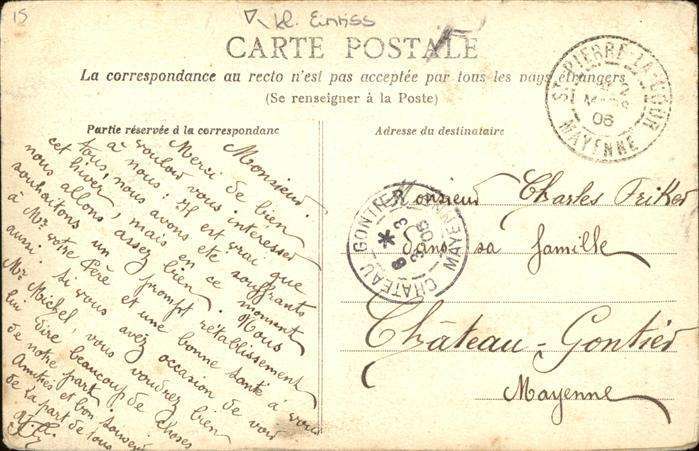 15
Kl.
CARTE POSTALE
La correspondance au recto n'est pas acceptée par tous les pays étrangers
(Se renseigner à la Poste)
Partie réservée à la correspondance
Adresse du destinataire
ST PIERRE-LA-COUR
MAYENNE
06
CHATEAU-GONTIER
MAYENNE
Monsieur
Merci de bien
vouloir vous intéresser
à nous : Il est vrai que
tous, nous avons été souffrants
cet hiver, mais en ce moment
nous allons assez bien. Nous
souhaitons un prompt rétablissement
à Mr votre Père et une bonne santé à vous
aussi. Si vous avez occasion de voir
Mr Michel, vous voudrez bien
lui dire beaucoup de choses
de notre part.
Amitiés et bon souvenir
de la part de tous
Monsieur Charles
dans sa famille
Château-Gontier
Mayenne